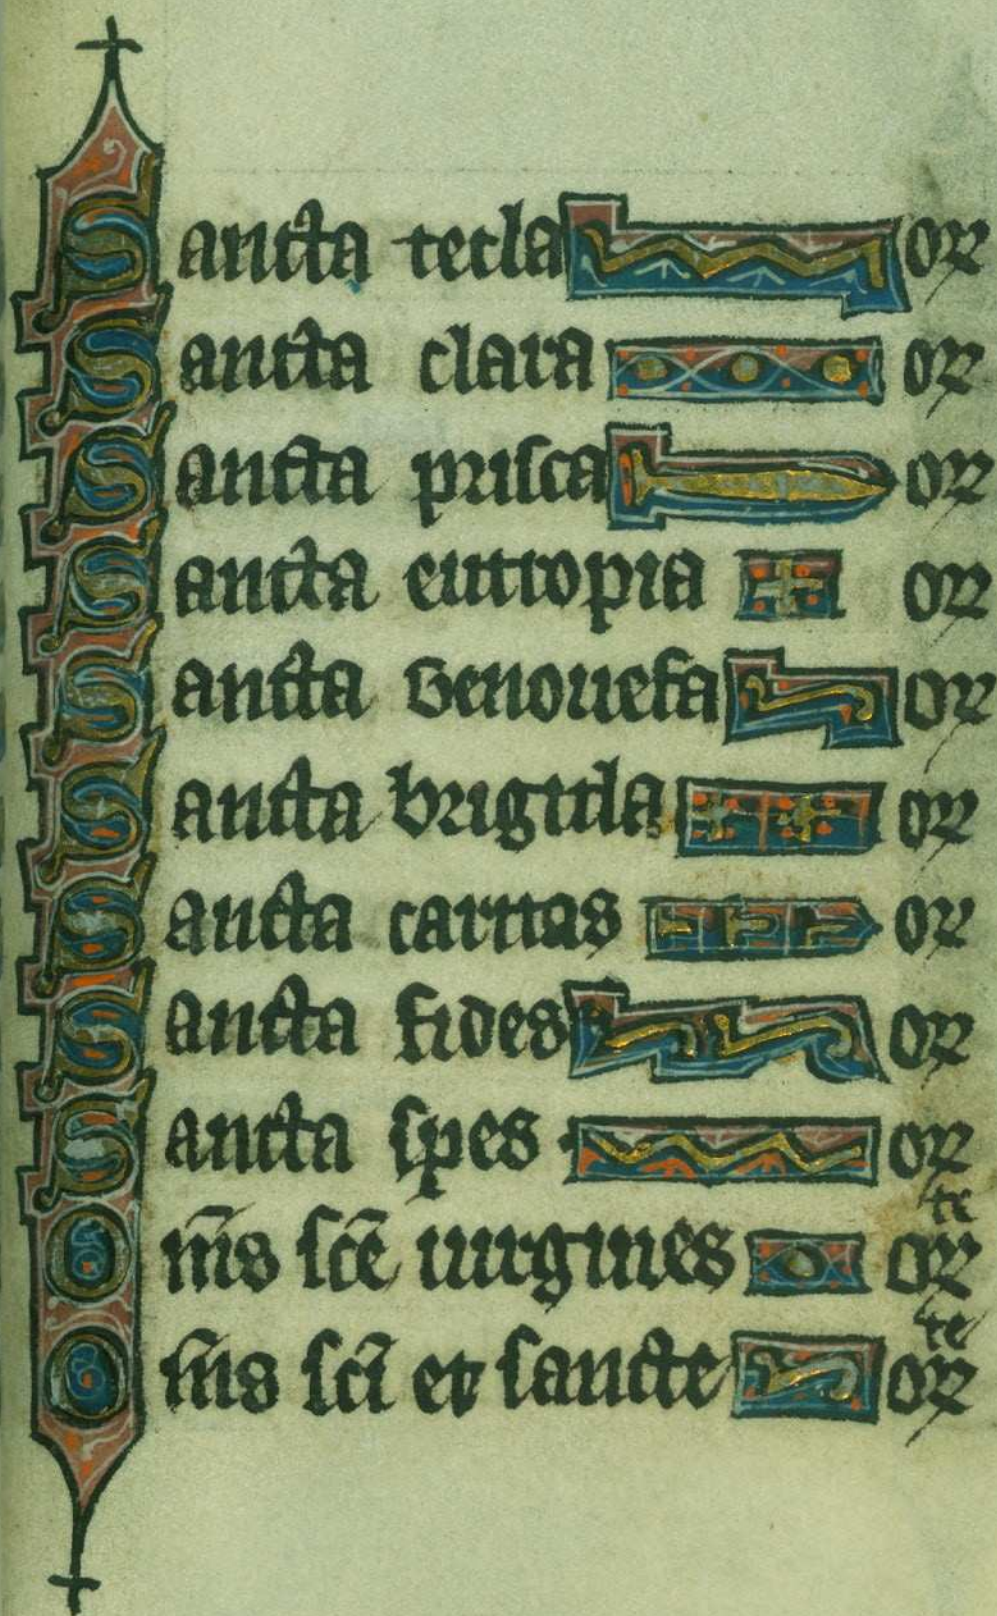 Sancta tecla or
Sancta clara or
Sancta prisca or
Sancta eutropia or
Sancta Genouefa or
Sancta brigida or
Sancta caritas or
Sancta fides or
Sancta spes or
Om̄s sc̄e uirgines or te
Om̄s sc̄i et sancte or te